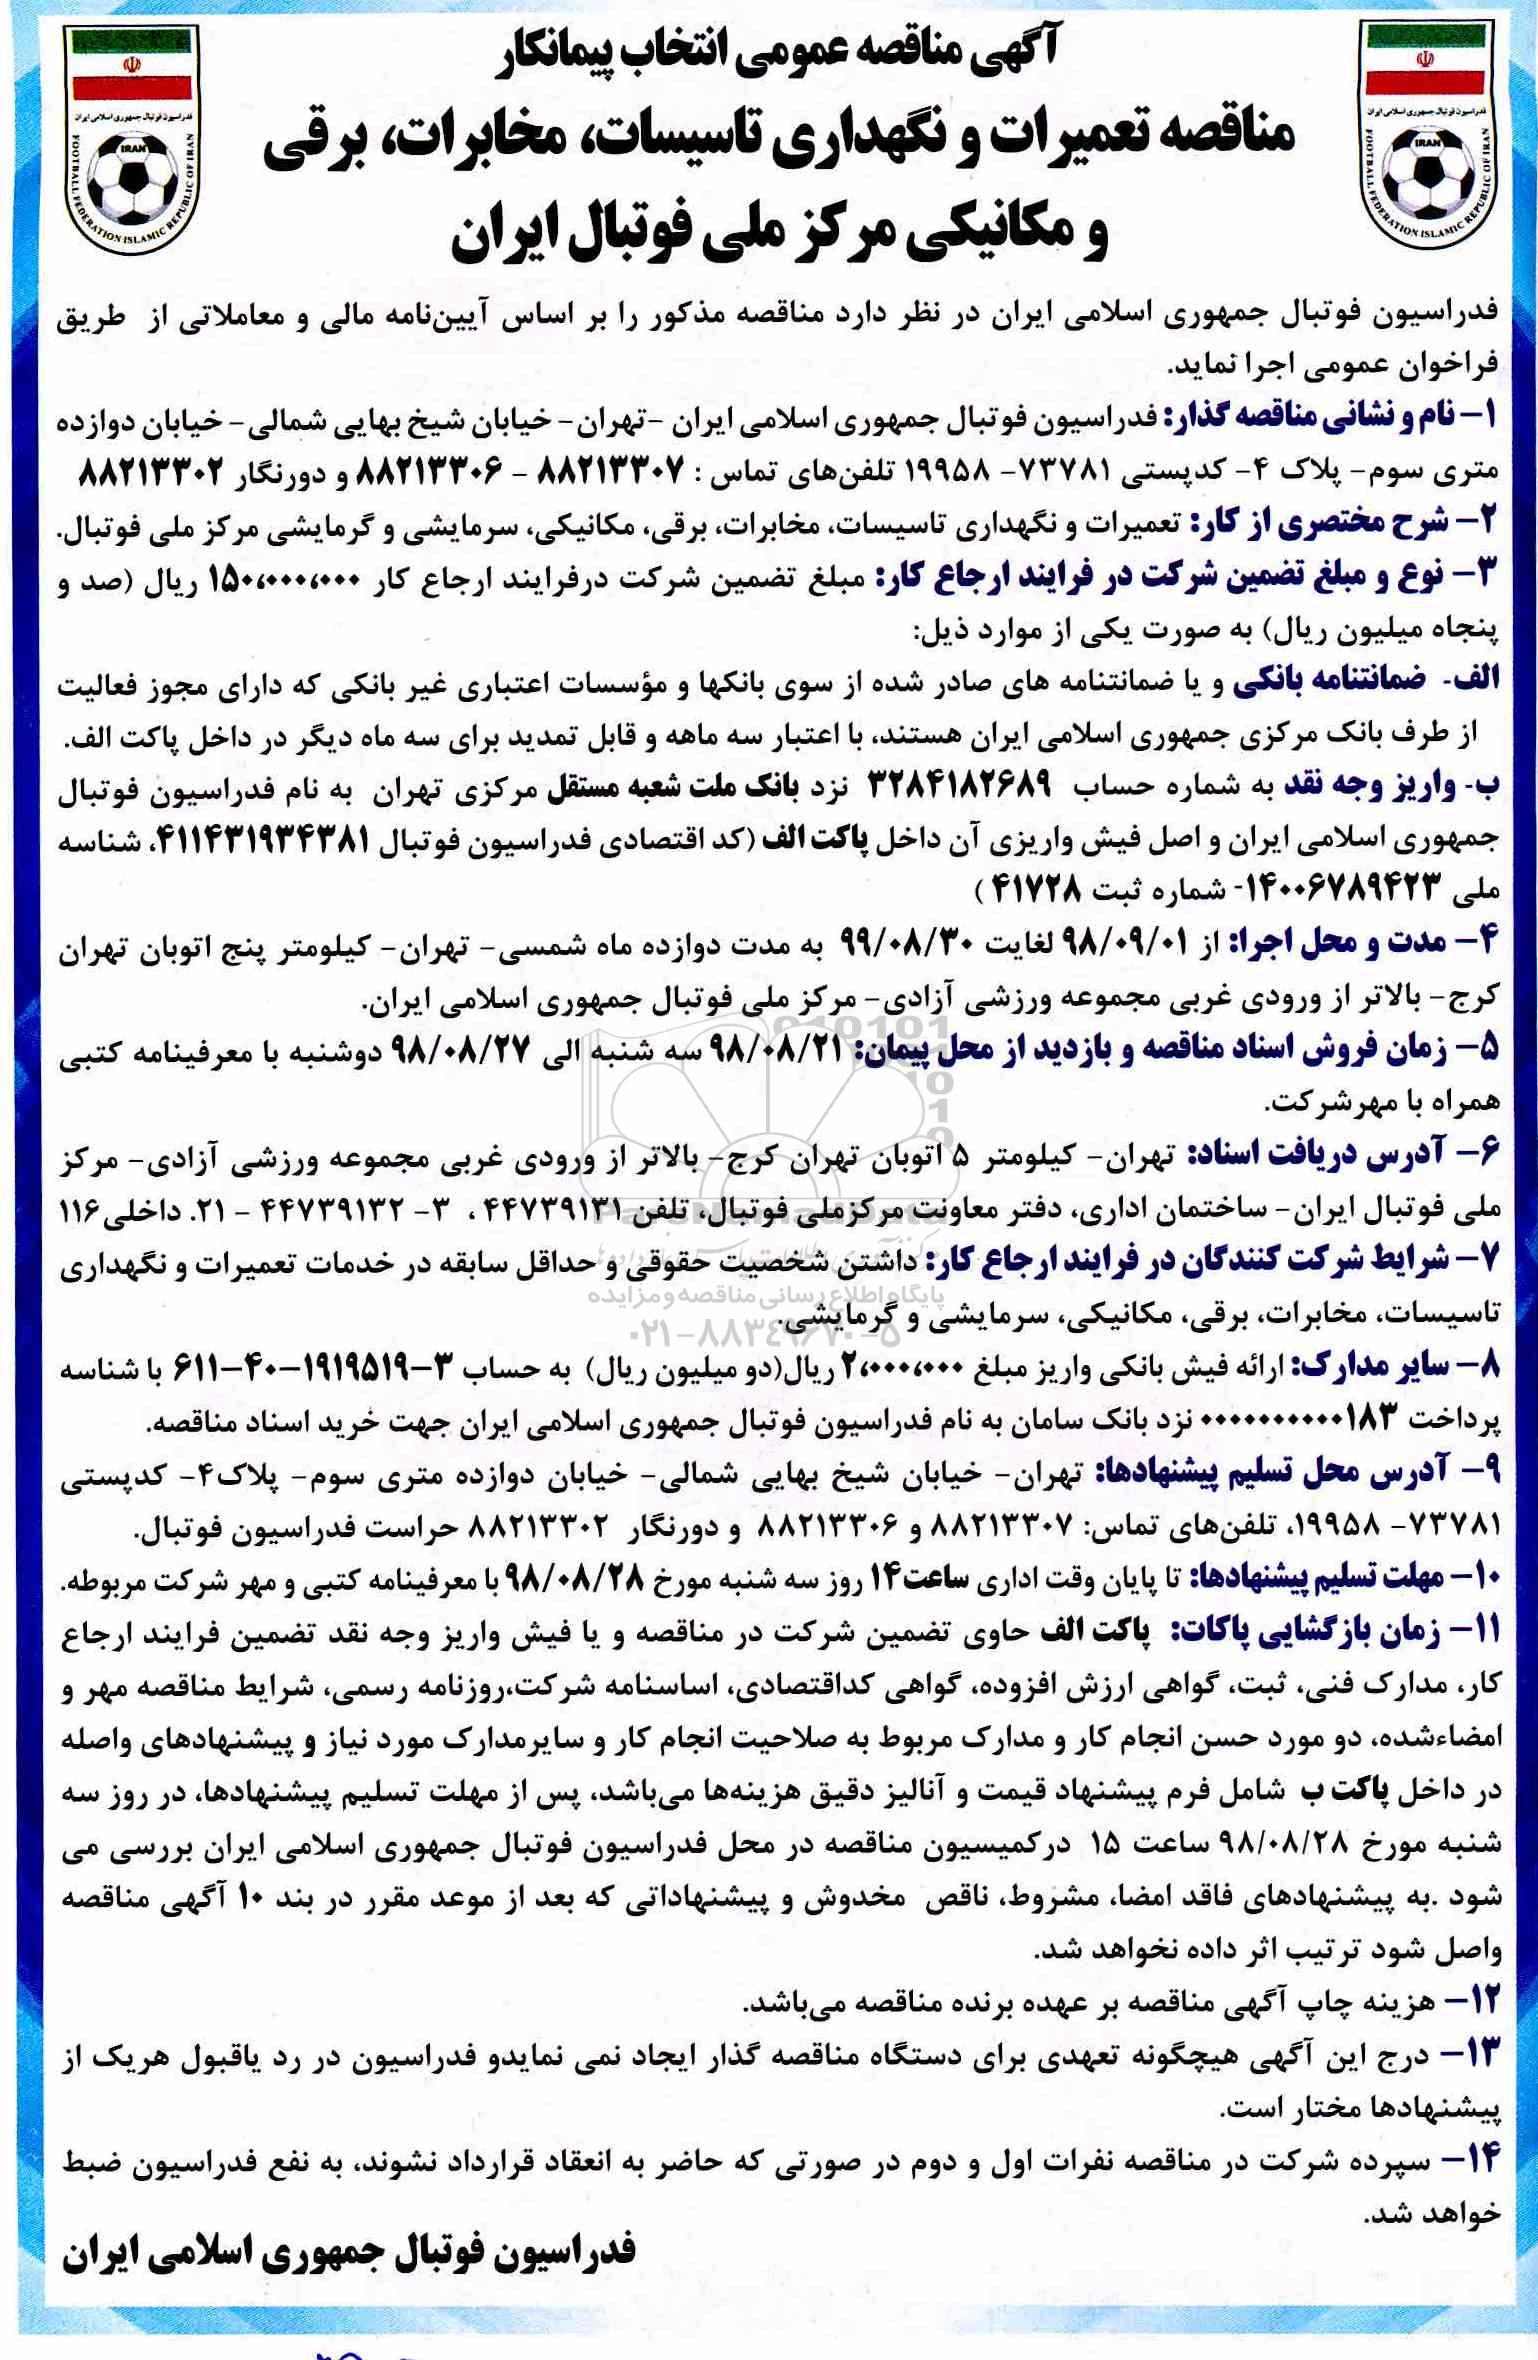 آگهی مناقصه عمومی انتخاب پیمانکار
مناقصه تعمیرات و نگهداری تاسیسات، مخابرات، برقی
و مکانیکی مرکز ملی فوتبال ایران
فدراسیون فوتبال جمهوری اسلامی ایران
IRAN
FOOTBALL FEDERATION ISLAMIC REPUBLIC OF IRAN
فدراسیون فوتبال جمهوری اسلامی ایران
IRAN
FOOTBALL FEDERATION ISLAMIC REPUBLIC OF IRAN
فدراسیون فوتبال جمهوری اسلامی ایران در نظر دارد مناقصه مذکور را بر اساس آیین‌نامه مالی و معاملاتی از طریق
فراخوان عمومی اجرا نماید.
۱- نام و نشانی مناقصه گذار: فدراسیون فوتبال جمهوری اسلامی ایران -تهران- خیابان شیخ بهایی شمالی- خیابان دوازده
متری سوم- پلاک ۴- کدپستی ۷۳۷۸۱- ۱۹۹۵۸ تلفن‌های تماس : ۸۸۲۱۳۳۰۷ - ۸۸۲۱۳۳۰۶ و دورنگار ۸۸۲۱۳۳۰۲
۲- شرح مختصری از کار: تعمیرات و نگهداری تاسیسات، مخابرات، برقی، مکانیکی، سرمایشی و گرمایشی مرکز ملی فوتبال.
۳- نوع و مبلغ تضمین شرکت در فرایند ارجاع کار: مبلغ تضمین شرکت درفرایند ارجاع کار ۱۵۰،۰۰۰،۰۰۰ ریال (صد و
پنجاه میلیون ریال) به صورت یکی از موارد ذیل:
الف- ضمانتنامه بانکی و یا ضمانتنامه های صادر شده از سوی بانکها و مؤسسات اعتباری غیر بانکی که دارای مجوز فعالیت
از طرف بانک مرکزی جمهوری اسلامی ایران هستند، با اعتبار سه ماهه و قابل تمدید برای سه ماه دیگر در داخل پاکت الف.
ب- واریز وجه نقد به شماره حساب ۳۲۸۴۱۸۲۶۸۹ نزد بانک ملت شعبه مستقل مرکزی تهران به نام فدراسیون فوتبال
جمهوری اسلامی ایران و اصل فیش واریزی آن داخل پاکت الف (کد اقتصادی فدراسیون فوتبال ۴۱۱۴۳۱۹۳۴۳۸۱، شناسه
ملی ۱۴۰۰۶۷۸۹۴۲۳- شماره ثبت ۴۱۷۲۸ )
۴- مدت و محل اجرا: از ۹۸/۰۹/۰۱ لغایت ۹۹/۰۸/۳۰ به مدت دوازده ماه شمسی- تهران- کیلومتر پنج اتوبان تهران
کرج- بالاتر از ورودی غربی مجموعه ورزشی آزادی- مرکز ملی فوتبال جمهوری اسلامی ایران.
۵- زمان فروش اسناد مناقصه و بازدید از محل پیمان: ۹۸/۰۸/۲۱ سه شنبه الی ۹۸/۰۸/۲۷ دوشنبه با معرفینامه کتبی
همراه با مهرشرکت.
۶- آدرس دریافت اسناد: تهران- کیلومتر ۵ اتوبان تهران کرج- بالاتر از ورودی غربی مجموعه ورزشی آزادی- مرکز
ملی فوتبال ایران- ساختمان اداری، دفتر معاونت مرکزملی فوتبال، تلفن ۴۴۷۳۹۱۳۱ ، ۳- ۴۴۷۳۹۱۳۲ - ۲۱. داخلی ۱۱۶
۷- شرایط شرکت کنندگان در فرایند ارجاع کار: داشتن شخصیت حقوقی و حداقل سابقه در خدمات تعمیرات و نگهداری
پایگاه اطلاع رسانی مناقصه و مزایده
تاسیسات، مخابرات، برقی، مکانیکی، سرمایشی و گرمایشی.
۰۲۱-۸۸۳۴۹۶۷۰-۵
۸- سایر مدارک: ارائه فیش بانکی واریز مبلغ ۲،۰۰۰،۰۰۰ ریال(دو میلیون ریال) به حساب ۳-۱۹۱۹۵۱۹-۴۰-۶۱۱ با شناسه
پرداخت ۰۰۰۰۰۰۰۰۰۰۱۸۳ نزد بانک سامان به نام فدراسیون فوتبال جمهوری اسلامی ایران جهت خرید اسناد مناقصه.
۹- آدرس محل تسلیم پیشنهادها: تهران- خیابان شیخ بهایی شمالی- خیابان دوازده متری سوم- پلاک۴- کدپستی
۷۳۷۸۱- ۱۹۹۵۸، تلفن‌های تماس: ۸۸۲۱۳۳۰۷ و ۸۸۲۱۳۳۰۶ و دورنگار ۸۸۲۱۳۳۰۲ حراست فدراسیون فوتبال.
۱۰- مهلت تسلیم پیشنهادها: تا پایان وقت اداری ساعت۱۴ روز سه شنبه مورخ ۹۸/۰۸/۲۸ با معرفینامه کتبی و مهر شرکت مربوطه.
۱۱- زمان بازگشایی پاکات: پاکت الف حاوی تضمین شرکت در مناقصه و یا فیش واریز وجه نقد تضمین فرایند ارجاع
کار، مدارک فنی، ثبت، گواهی ارزش افزوده، گواهی کداقتصادی، اساسنامه شرکت،روزنامه رسمی، شرایط مناقصه مهر و
امضاءشده، دو مورد حسن انجام کار و مدارک مربوط به صلاحیت انجام کار و سایرمدارک مورد نیاز و پیشنهادهای واصله
در داخل پاکت ب شامل فرم پیشنهاد قیمت و آنالیز دقیق هزینه‌ها می‌باشد، پس از مهلت تسلیم پیشنهادها، در روز سه
شنبه مورخ ۹۸/۰۸/۲۸ ساعت ۱۵ درکمیسیون مناقصه در محل فدراسیون فوتبال جمهوری اسلامی ایران بررسی می
شود .به پیشنهادهای فاقد امضا، مشروط، ناقص مخدوش و پیشنهاداتی که بعد از موعد مقرر در بند ۱۰ آگهی مناقصه
واصل شود ترتیب اثر داده نخواهد شد.
۱۲- هزینه چاپ آگهی مناقصه بر عهده برنده مناقصه می‌باشد.
۱۳- درج این آگهی هیچگونه تعهدی برای دستگاه مناقصه گذار ایجاد نمی نمایدو فدراسیون در رد یاقبول هریک از
پیشنهادها مختار است.
۱۴- سپرده شرکت در مناقصه نفرات اول و دوم در صورتی که حاضر به انعقاد قرارداد نشوند، به نفع فدراسیون ضبط
خواهد شد.
فدراسیون فوتبال جمهوری اسلامی ایران